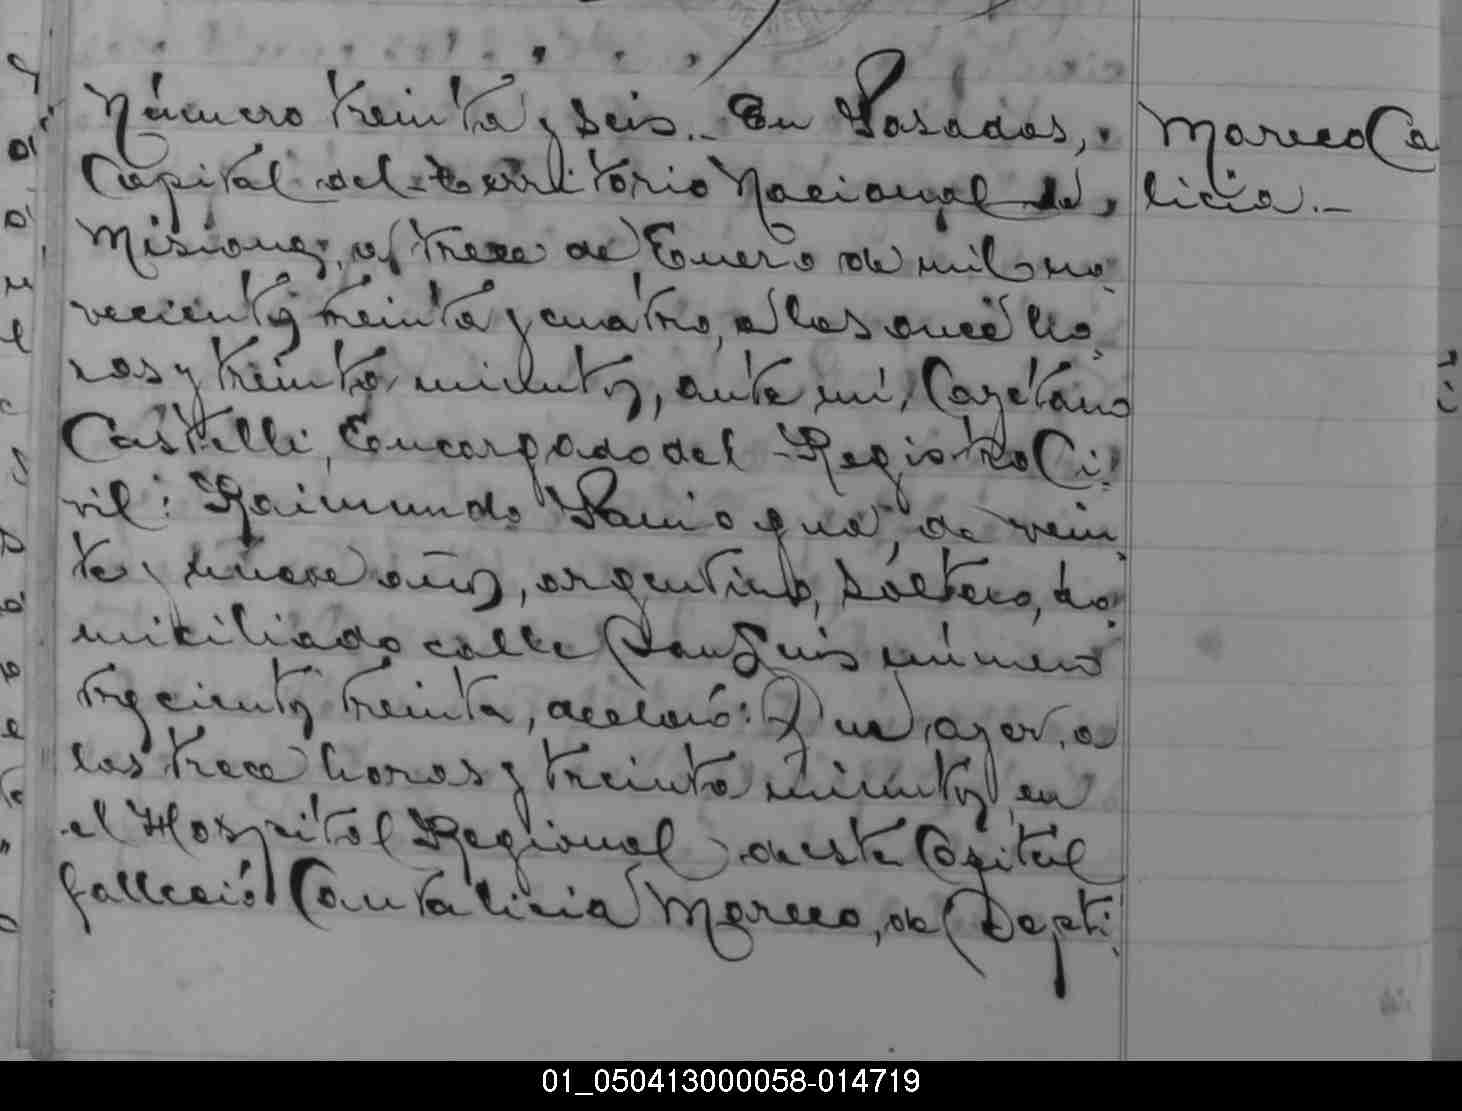 Número treinta y seis.- En Posadas,
Capital del territorio Nacional de
Misiones, a trece de Enero de mil no
vecientos treinta y cuatro, a las once ho
ras y treinta minutos, ante mí, Cayetano
Castelli, Encargado del Registro Ci
vil: Raimundo de vein
te y nueve años, argentino, soltero, do
miciliado calle San Luis número
trescientos treinta, declaró: Que ayer, a
las trece horas y treinta minutos en
el Hospital Regional de esta Capital
falleció Cantalicia Moreco, de Septi
Moreco Ca
licia.-
01_050413000058-014719